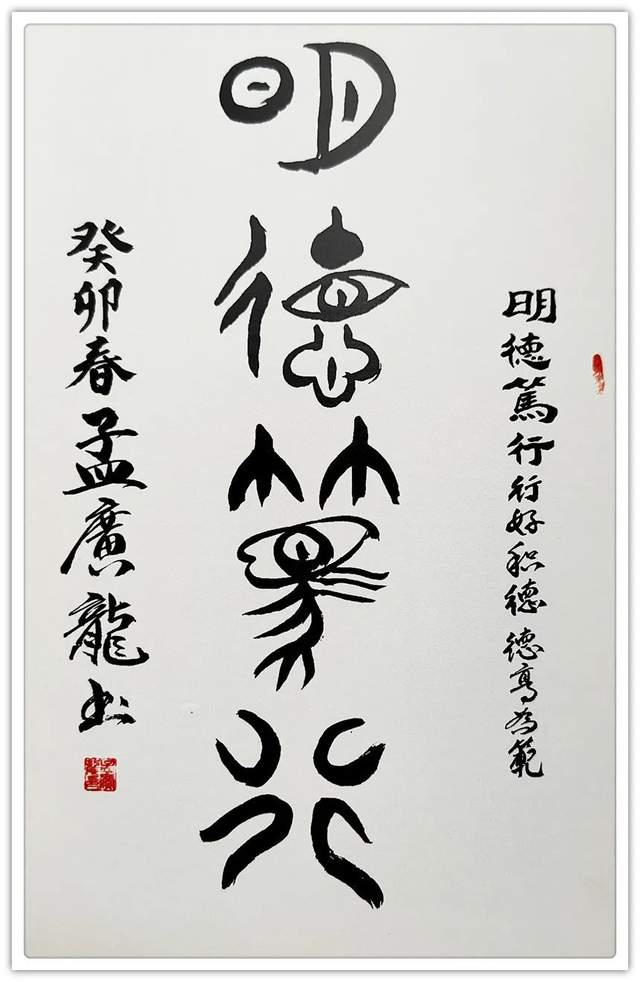 明德篤行行好积德德高为範
明德篤行
癸卯春孟廣龍书